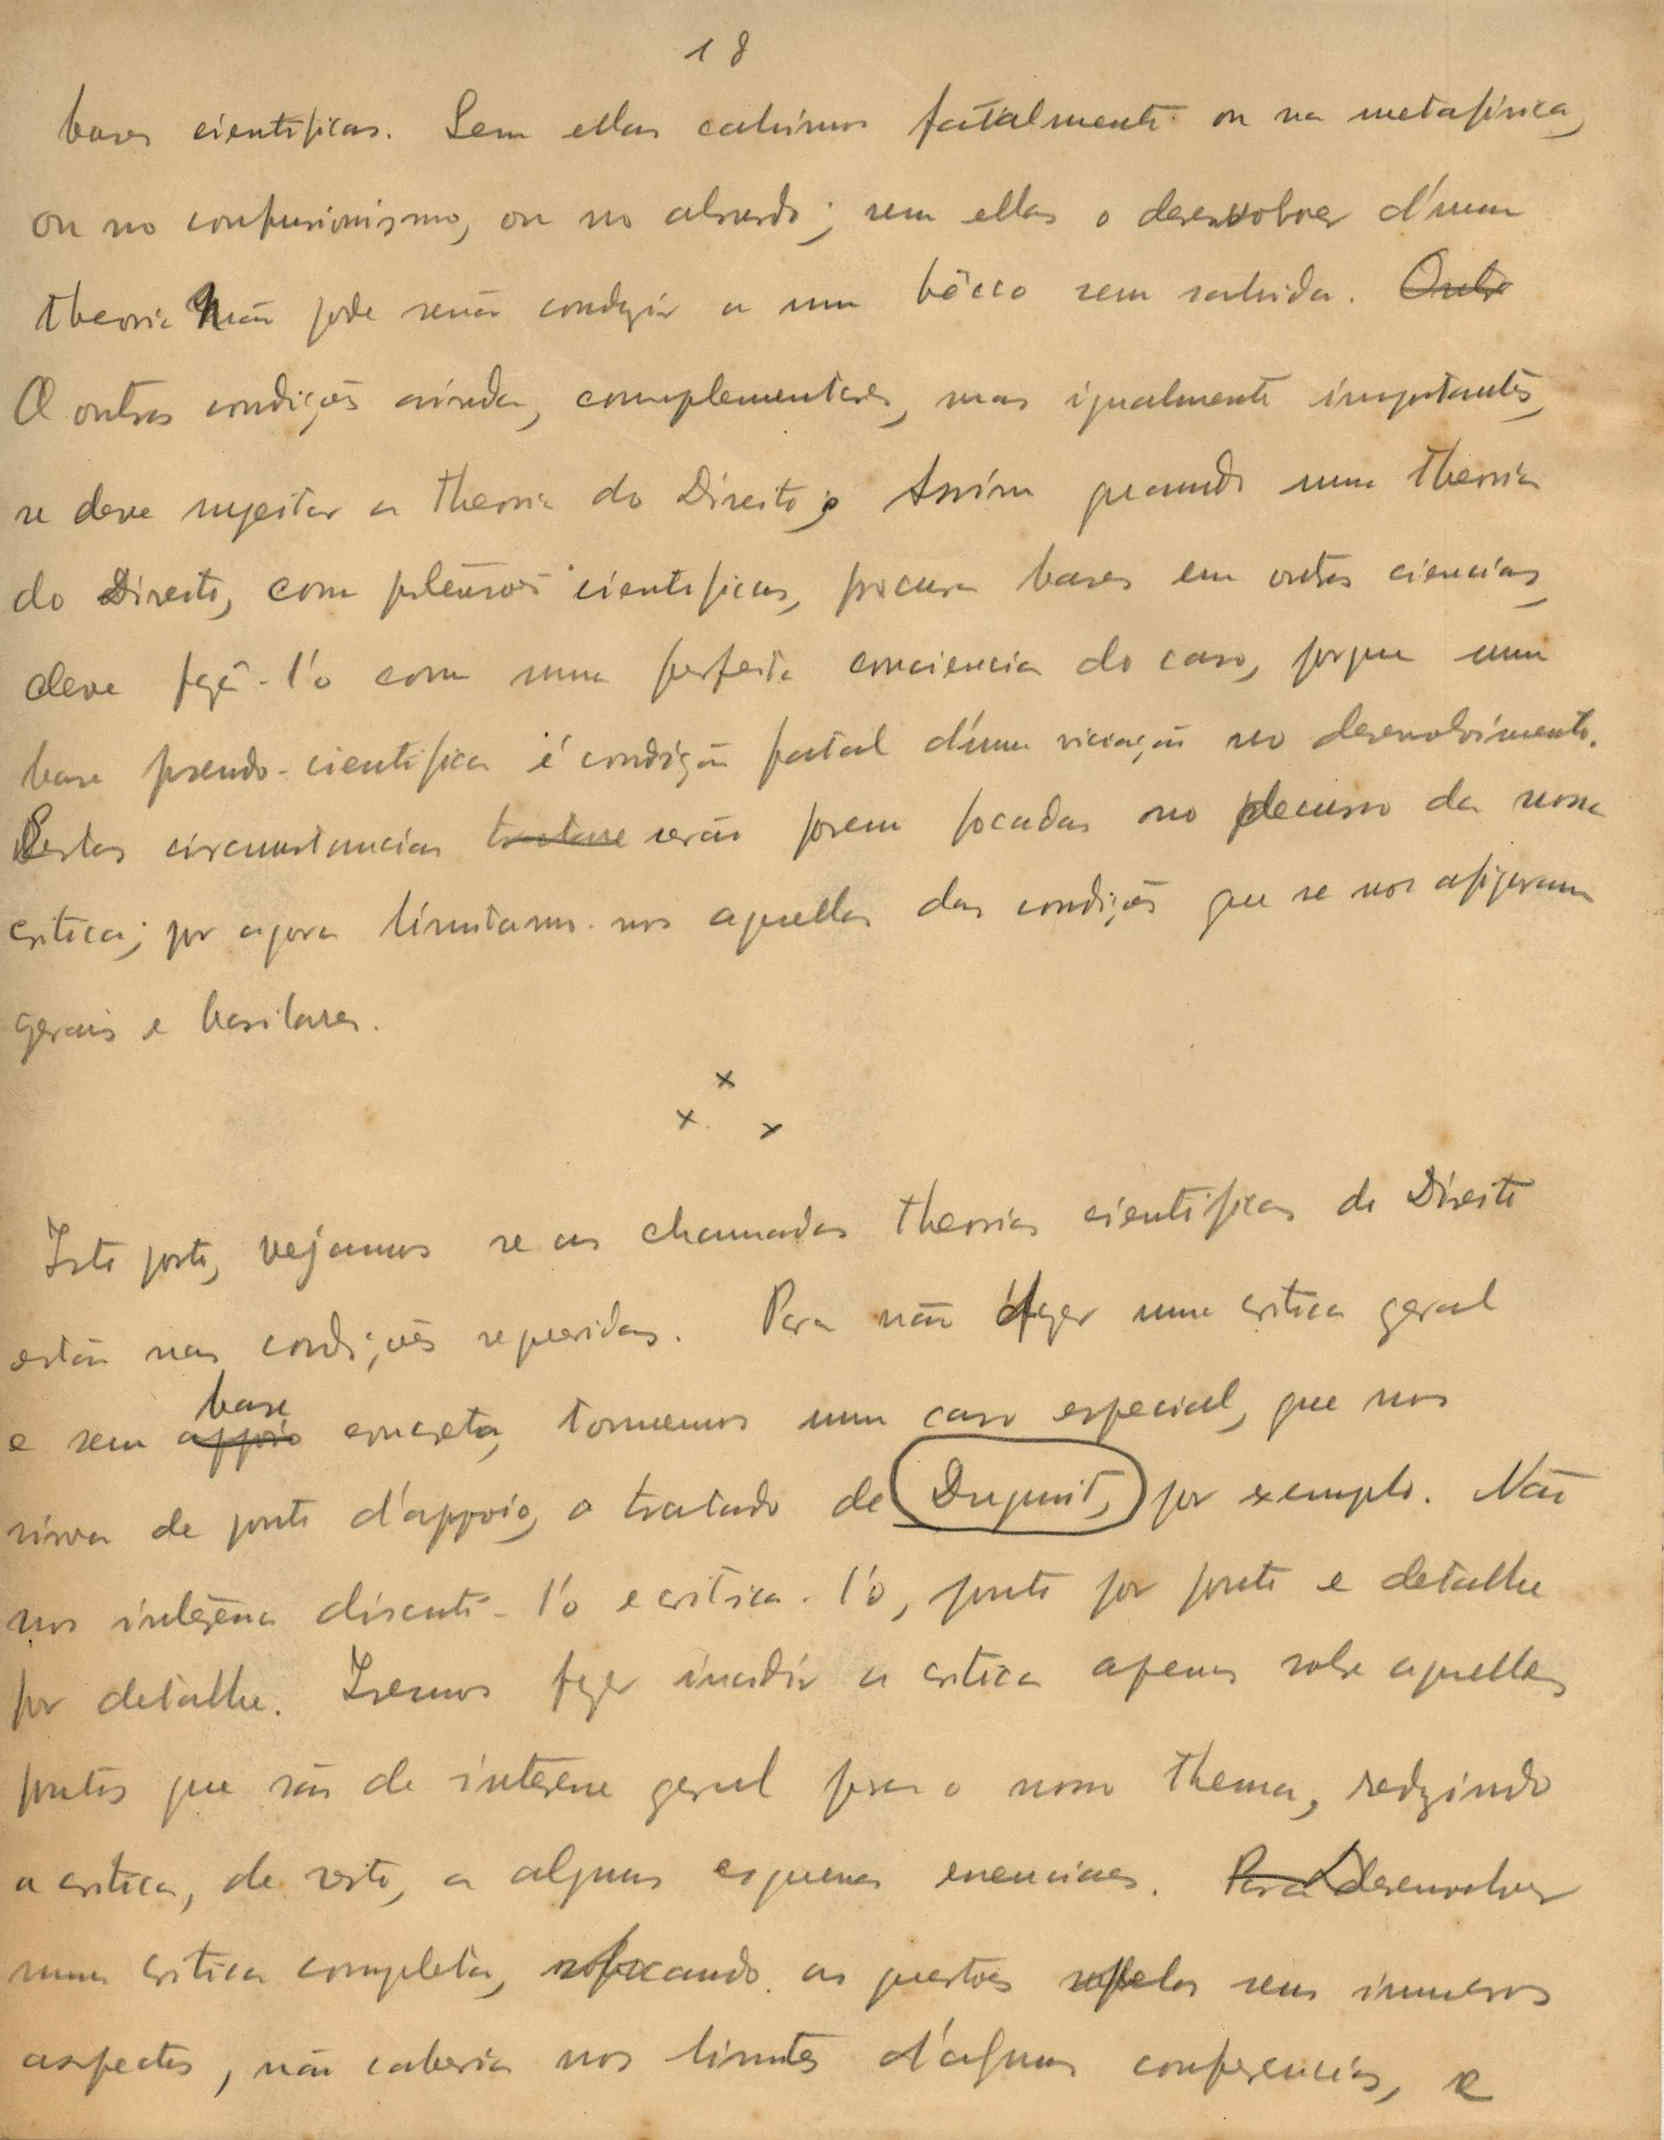 18
bases cientificas. Sem ellas cahimos fatalmente ou na metafisica,
ou no confusionismo, ou no absurdo; sem ellas o desenvolver d'uma
theoria não pode senão conduzir a um bêcco sem sahida. Outr
A outras condições ainda, complementares, mas igualmente importantes,
se deve sujeitar a theoria do Direito; Assim quando uma theoria
do Direito, com pretensões cientificas, procura bases em outras ciencias,
deve fazê-l'o com uma perfeita consciencia do caso, porque uma
base pseudo-cientifica é condição fatal d'uma viciação no desenvolvimento.
Destas circumstancias tratare serão porem focadas no decurso da nossa
critica; por agora limitamo-nos aquellas das condições que se nos afiguram
gerais e basilares.
x
x x
Isto posto, vejamos se as chamadas theorias cientificas do Direito
estão nas condições requeridas. Para não fazer uma critica geral
base
e sem appoio concreta, tomemos um caso especial, que nos
sirva de ponto d'appoio, o tratado de Duguit, por exemplo. Não
nos interessa discuti-l'o e critica-l'o, ponto por ponto e detalhe
por detalhe. Iremos fazer incidir a critica apenas sobre aquelles
pontos que são de interesse geral para o nosso thema, reduzindo
a critica, de resto, a alguns esquemas essenciaes. Para Desenvolver
uma critica completa, focando as questões pelos seus inumeros
aspectos, não caberia nos limites d'algumas conferencias, e